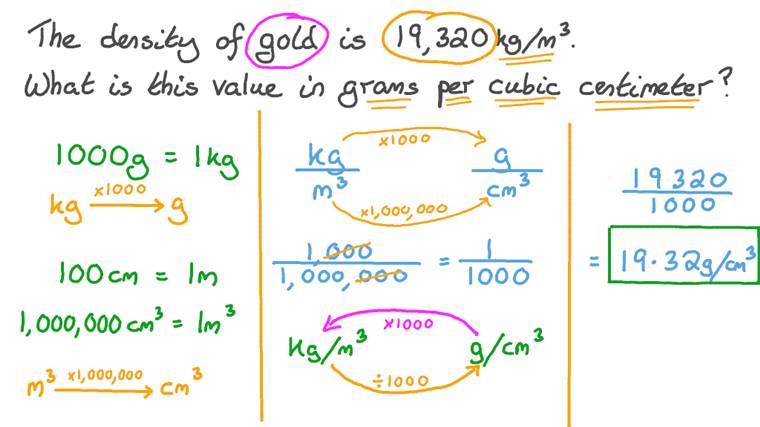 The density of gold is 19,320 kg/m³.
What is this value in grams per cubic centimeter?
1000g = 1kg
×1000
kg → g
100cm = 1m
1,000,000cm³ = 1m³
×1,000,000
m³ → cm³
×1000
kg g
m³ cm³
×1,000,000
1,000 1
1,000,000 = 1000
×1000
kg/m³ g/cm³
÷1000
19320
1000
= 19.32g/cm³